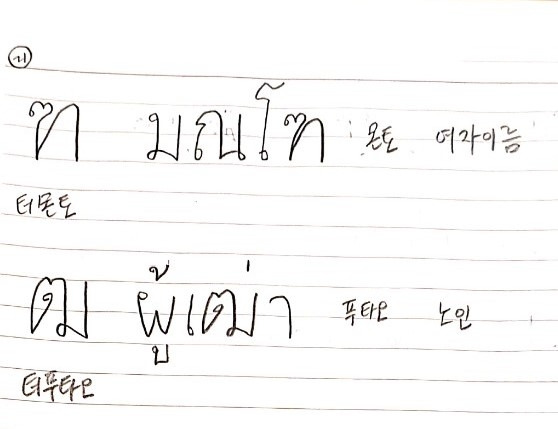 ㅋ
ฑ มณโฑ 몬토 여자이름
터몬토
ฒ ผู้เฒ่า 푸타오 노인
터푸타오